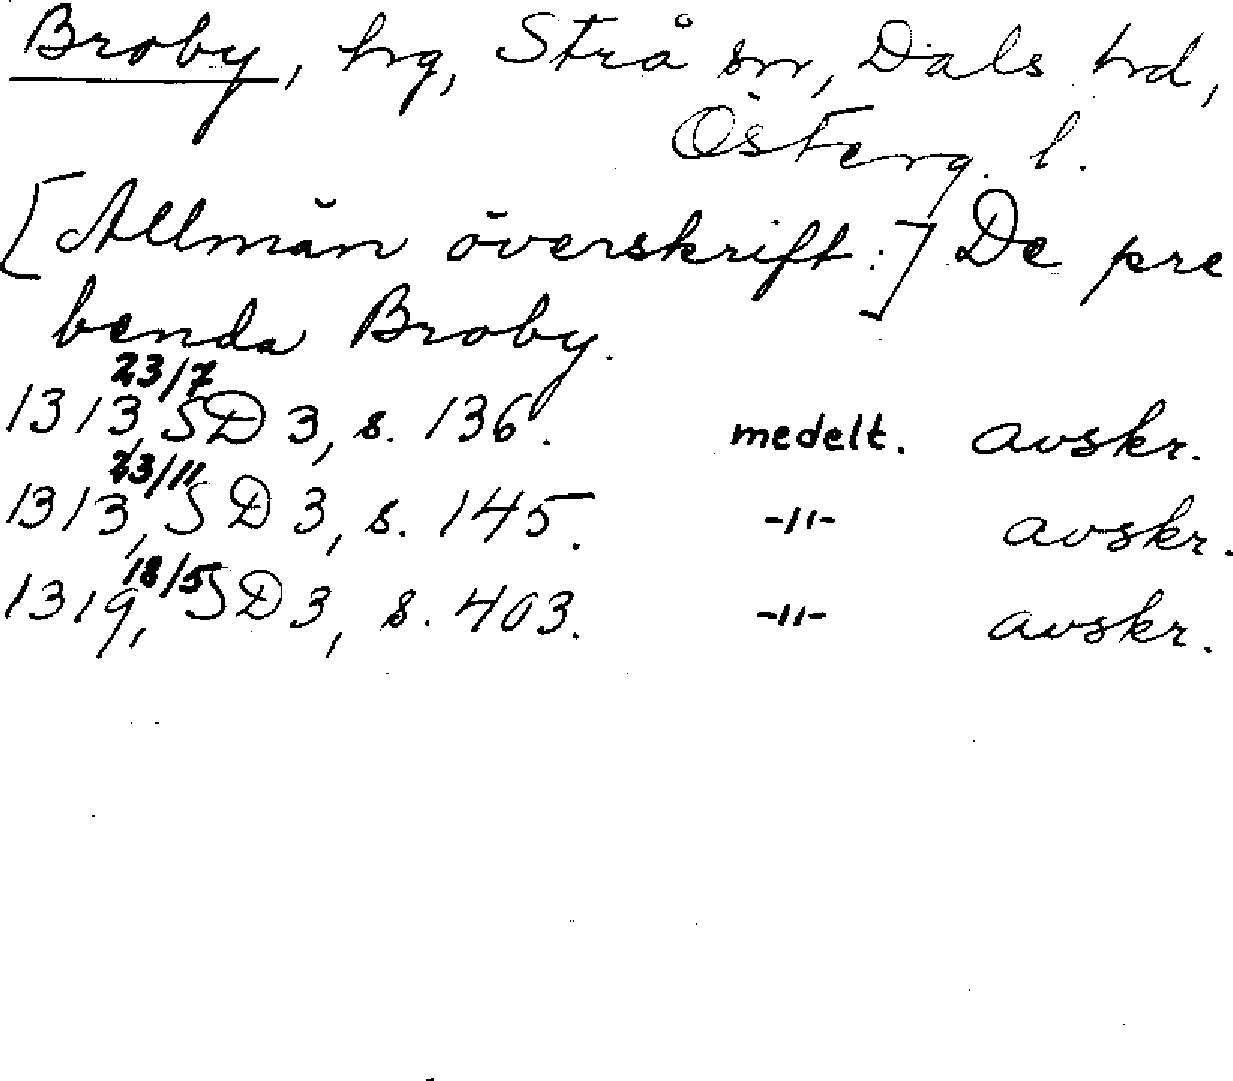 Broby, hrg, Strå sn, Dals hd,
Österg. l.
[Allmän överskrift:] De pre
benda Broby.
1313 23/7, SD 3, s. 136. medelt. avskr.
1313 23/11, SD 3, s. 145. -"- avskr.
1319 18/5, SD 3, s. 403. -"- avskr.